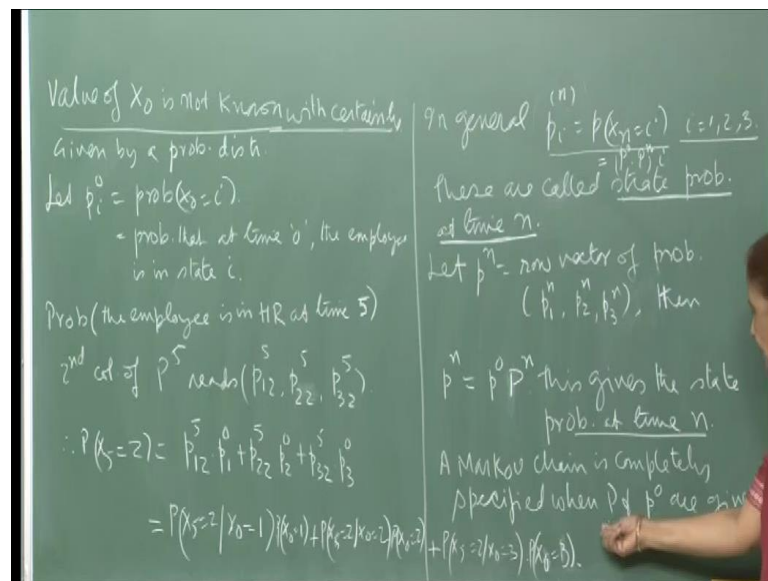 Value of X₀ is not known with certainty
Given by a prob. distn.
Let pᵢ⁰ = prob(X₀=i)
= prob. that at time '0', the employee
is in state i.
Prob(the employee is in HR at time 5)
2nd col of P⁵ reads (p₁₂⁵, p₂₂⁵, p₃₂⁵)
∴ P(X₅=2) = p₁₂⁵ p₁⁰ + p₂₂⁵ p₂⁰ + p₃₂⁵ p₃⁰
= P(X₅=2/X₀=1) P(X₀=1) + P(X₅=2/X₀=2) P(X₀=2) + P(X₅=2/X₀=3) P(X₀=3).
In general pᵢ⁽ⁿ⁾ = P(Xₙ=i) i=1,2,3.
= (p⁰ Pⁿ)ᵢ
these are called state prob.
at time n.
Let pⁿ = row vector of prob.
(p₁ⁿ, p₂ⁿ, p₃ⁿ), then
pⁿ = p⁰ Pⁿ this gives the state
prob. at time n.
A Markov chain is completely
specified when P & p⁰ are give